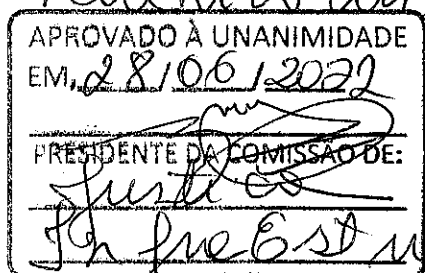 APROVADO À UNANIMIDADE
EM, 28/06/2022
PRESIDENTE DA COMISSÃO DE:
Justiça